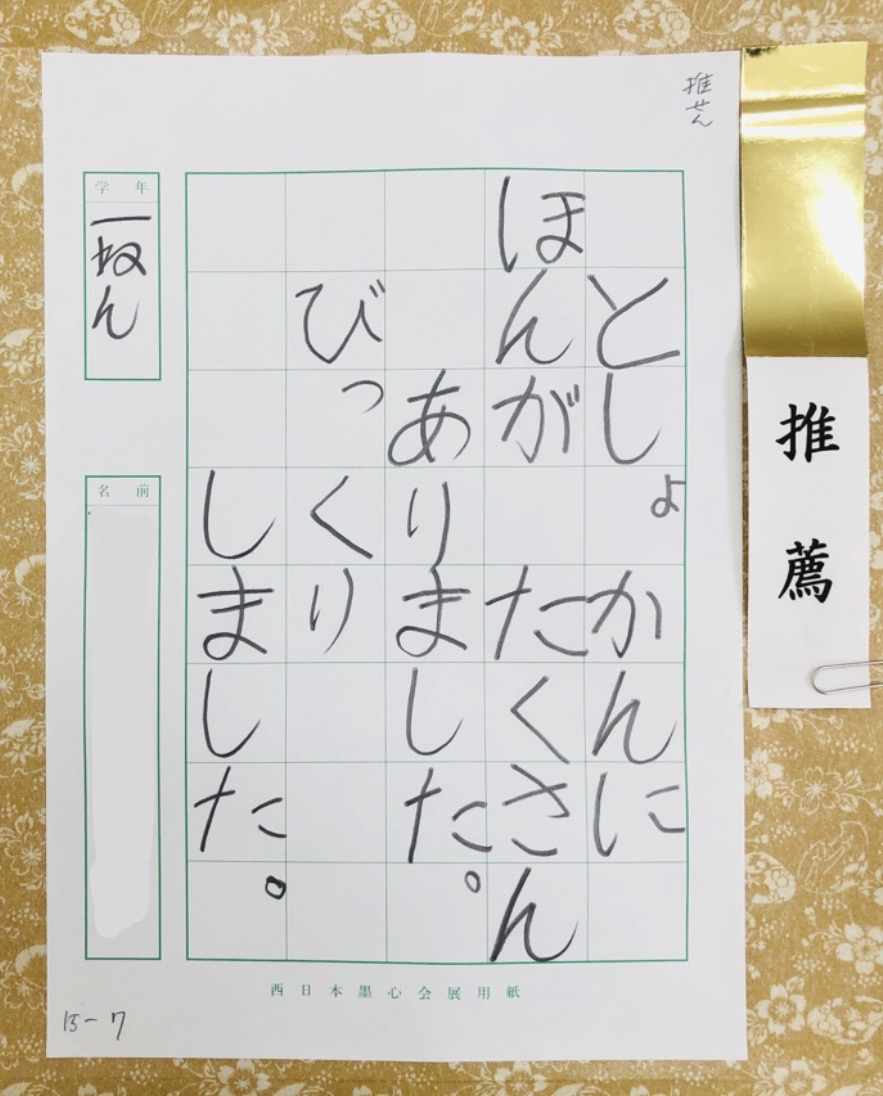 推せん
としょかんに
ほんがたくさん
ありました。
びっくり
しました。
学年
一ねん
名前
西日本墨心会展用紙
15-7
推薦